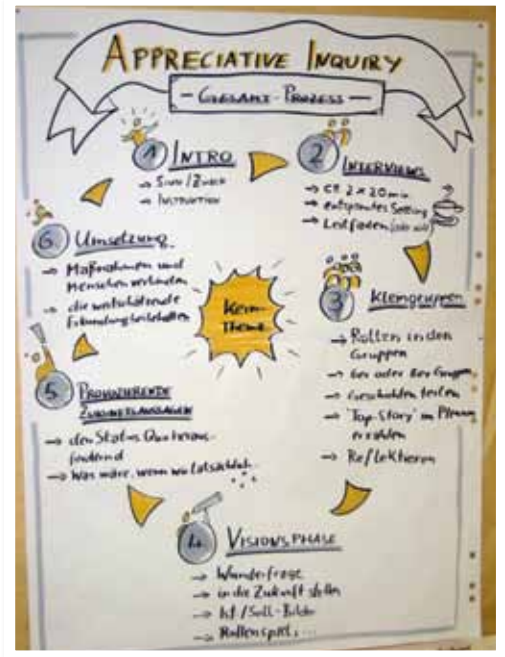 APPRECIATIVE INQUIRY
- GESAMT-PROZESS -
1 INTRO
→ Sinn/Zweck
→ Instruktion
2 INTERVIEWS
→ ca. 2 x 20 min
→ entspanntes Setting
→ Leitfaden
3 Kleingruppen
→ Rollen in den
Gruppen
→ 6er oder 8er Gruppen
→ Geschichten teilen
→ 'Top-Story' im Plenum
erzählen
→ Reflektieren
4. VISIONSPHASE
→ Wunderfrage
→ in die Zukunft stellen
→ Ist/Soll-Bilder
→ Rollenspiel, ...
5 PROVOZIERENDE
ZUKUNFTSAUSSAGEN
→ den Status Quo heraus-
fordernd
→ Was wäre, wenn wir tatsächlich
...
6. Umsetzung
→ Maßnahmen und
Menschen verbinden
→ die wertschätzende
Erkundung beibehalten
Kern-
Thema